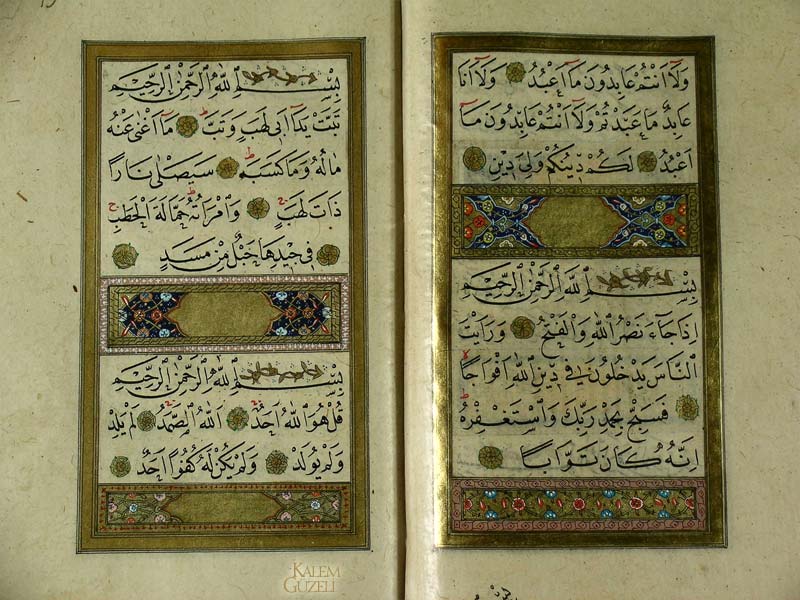 وَلَٓا اَنْتُمْ عَابِدُونَ مَٓا اَعْبُدُ وَلَٓا اَنَا
عَابِدٌ مَا عَبَدْتُمْ وَلَٓا اَنْتُمْ عَابِدُونَ مَٓا
اَعْبُدُ لَكُمْ دٖينُكُمْ وَلِيَ دٖينِ
بِسْمِ اللّٰهِ الرَّحْمٰنِ الرَّحٖيمِ
اِذَا جَٓاءَ نَصْرُ اللّٰهِ وَالْفَتْحُ وَرَاَيْتَ
النَّاسَ يَدْخُلُونَ فٖي دٖينِ اللّٰهِ اَفْوَاجًا
فَسَبِّحْ بِحَمْدِ رَبِّكَ وَاسْتَغْفِرْهُ
اِنَّهُ كَانَ تَوَّابًا
بِسْمِ اللّٰهِ الرَّحْمٰنِ الرَّحٖيمِ
تَبَّتْ يَدَٓا اَبٖي لَهَبٍ وَتَبَّ مَٓا اَغْنٰى عَنْهُ
مَالُهُ وَمَا كَسَبَ سَيَصْلٰى نَارًا
ذَاتَ لَهَبٍ وَامْرَاَتُهُ حَمَّالَةَ الْحَطَبِ
فٖي جٖيدِهَا حَبْلٌ مِنْ مَسَدٍ
بِسْمِ اللّٰهِ الرَّحْمٰنِ الرَّحٖيمِ
قُلْ هُوَ اللّٰهُ اَحَدٌ اَللّٰهُ الصَّمَدُ لَمْ يَلِدْ
وَلَمْ يُولَدْ وَلَمْ يَكُنْ لَهُ كُفُوًا اَحَدٌ
KALEM
GÜZELİ